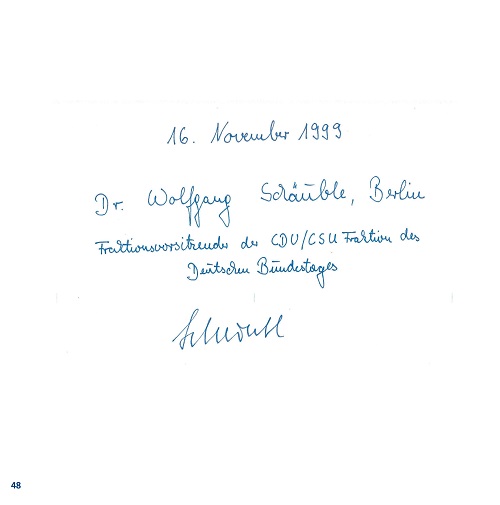 16. November 1999
Dr. Wolfgang Schäuble, Berlin
Fraktionsvorsitzender der CDU/CSU Fraktion des
Deutschen Bundestages
Schäuble
48